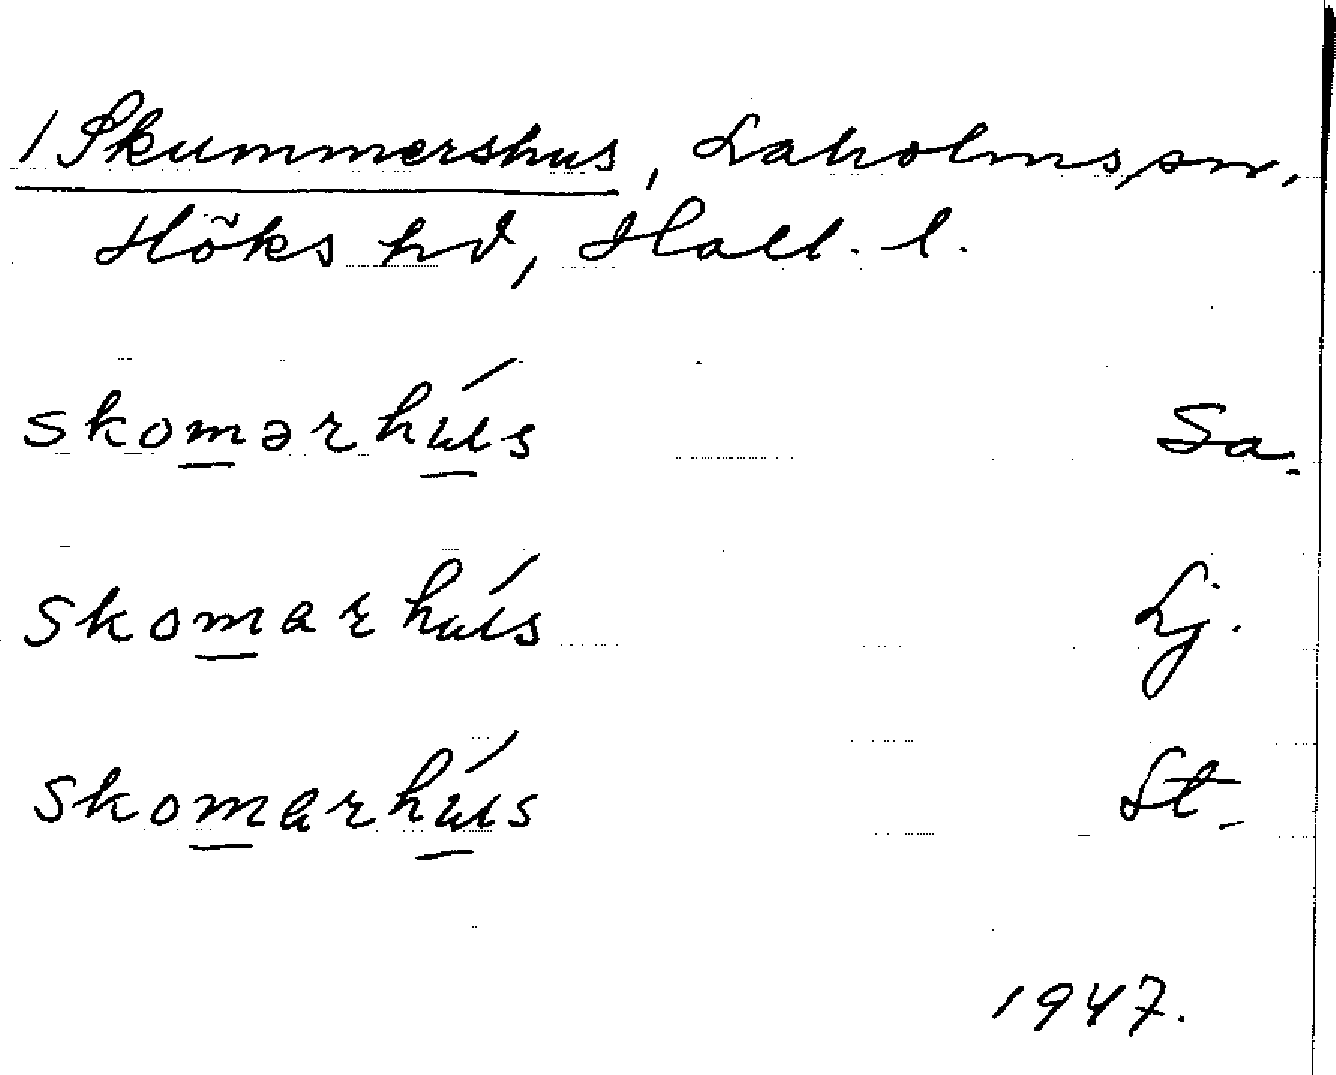 1 Skummershus, Laholms sn,
Höks hd, Hall. l.
skomərhús Sa.
skomarhús Lj.
skomarhús St.
1947.